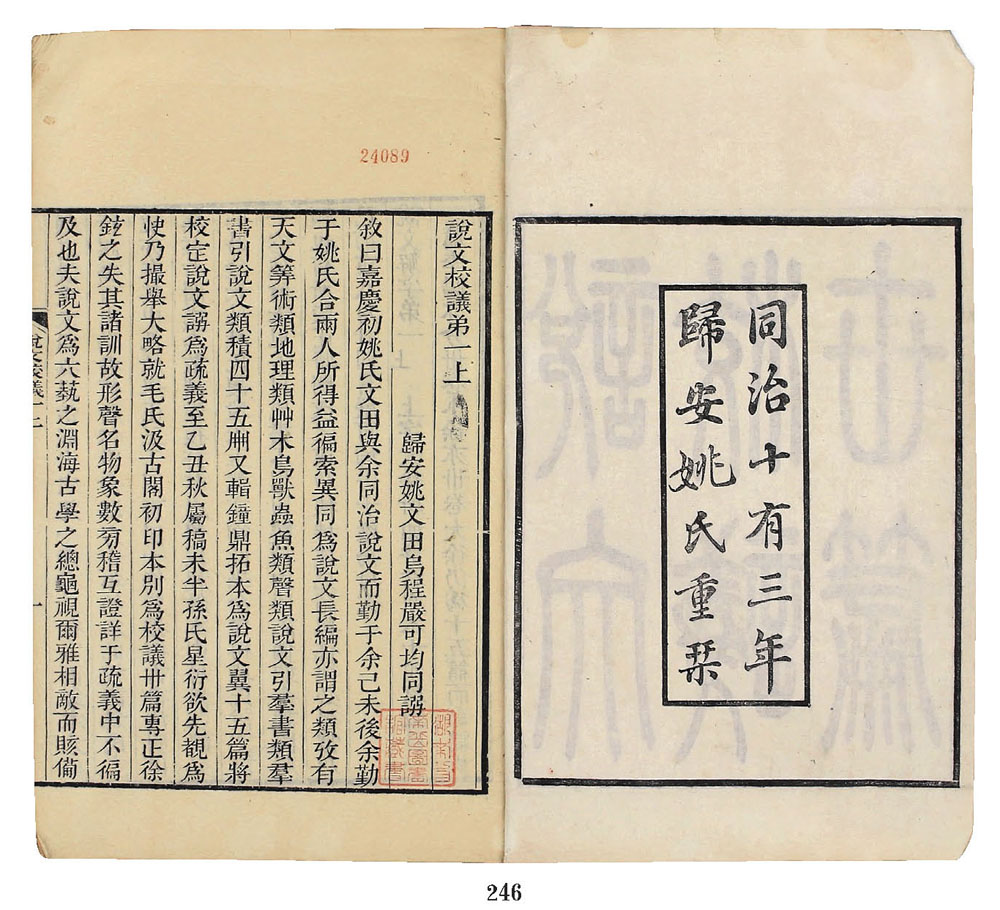 同治十有三年
歸安姚氏重栞
24089
說文校議弟一上
歸安姚文田烏程嚴可均同譔
敘曰嘉慶初姚氏文田與余同治說文而勤于余己未後余勤
于姚氏合兩人所得益徧索異同爲說文長編亦謂之類攷有
天文筭術類地理類艸木鳥獸蟲魚類聲類說文引羣書類羣
書引說文類積四十五冊又輯鐘鼎拓本爲說文翼十五篇將
校定說文譔爲疏義至乙丑秋屬稿未半孫氏星衍欲先覩爲
快乃撮舉大略就毛氏汲古閣初印本別爲校議卅篇專正徐
鉉之失其諸訓故形聲名物象數㫄稽互證詳于疏義中不徧
及也夫說文爲六藝之淵海古學之總龜視爾雅相敵而賅備
一
246